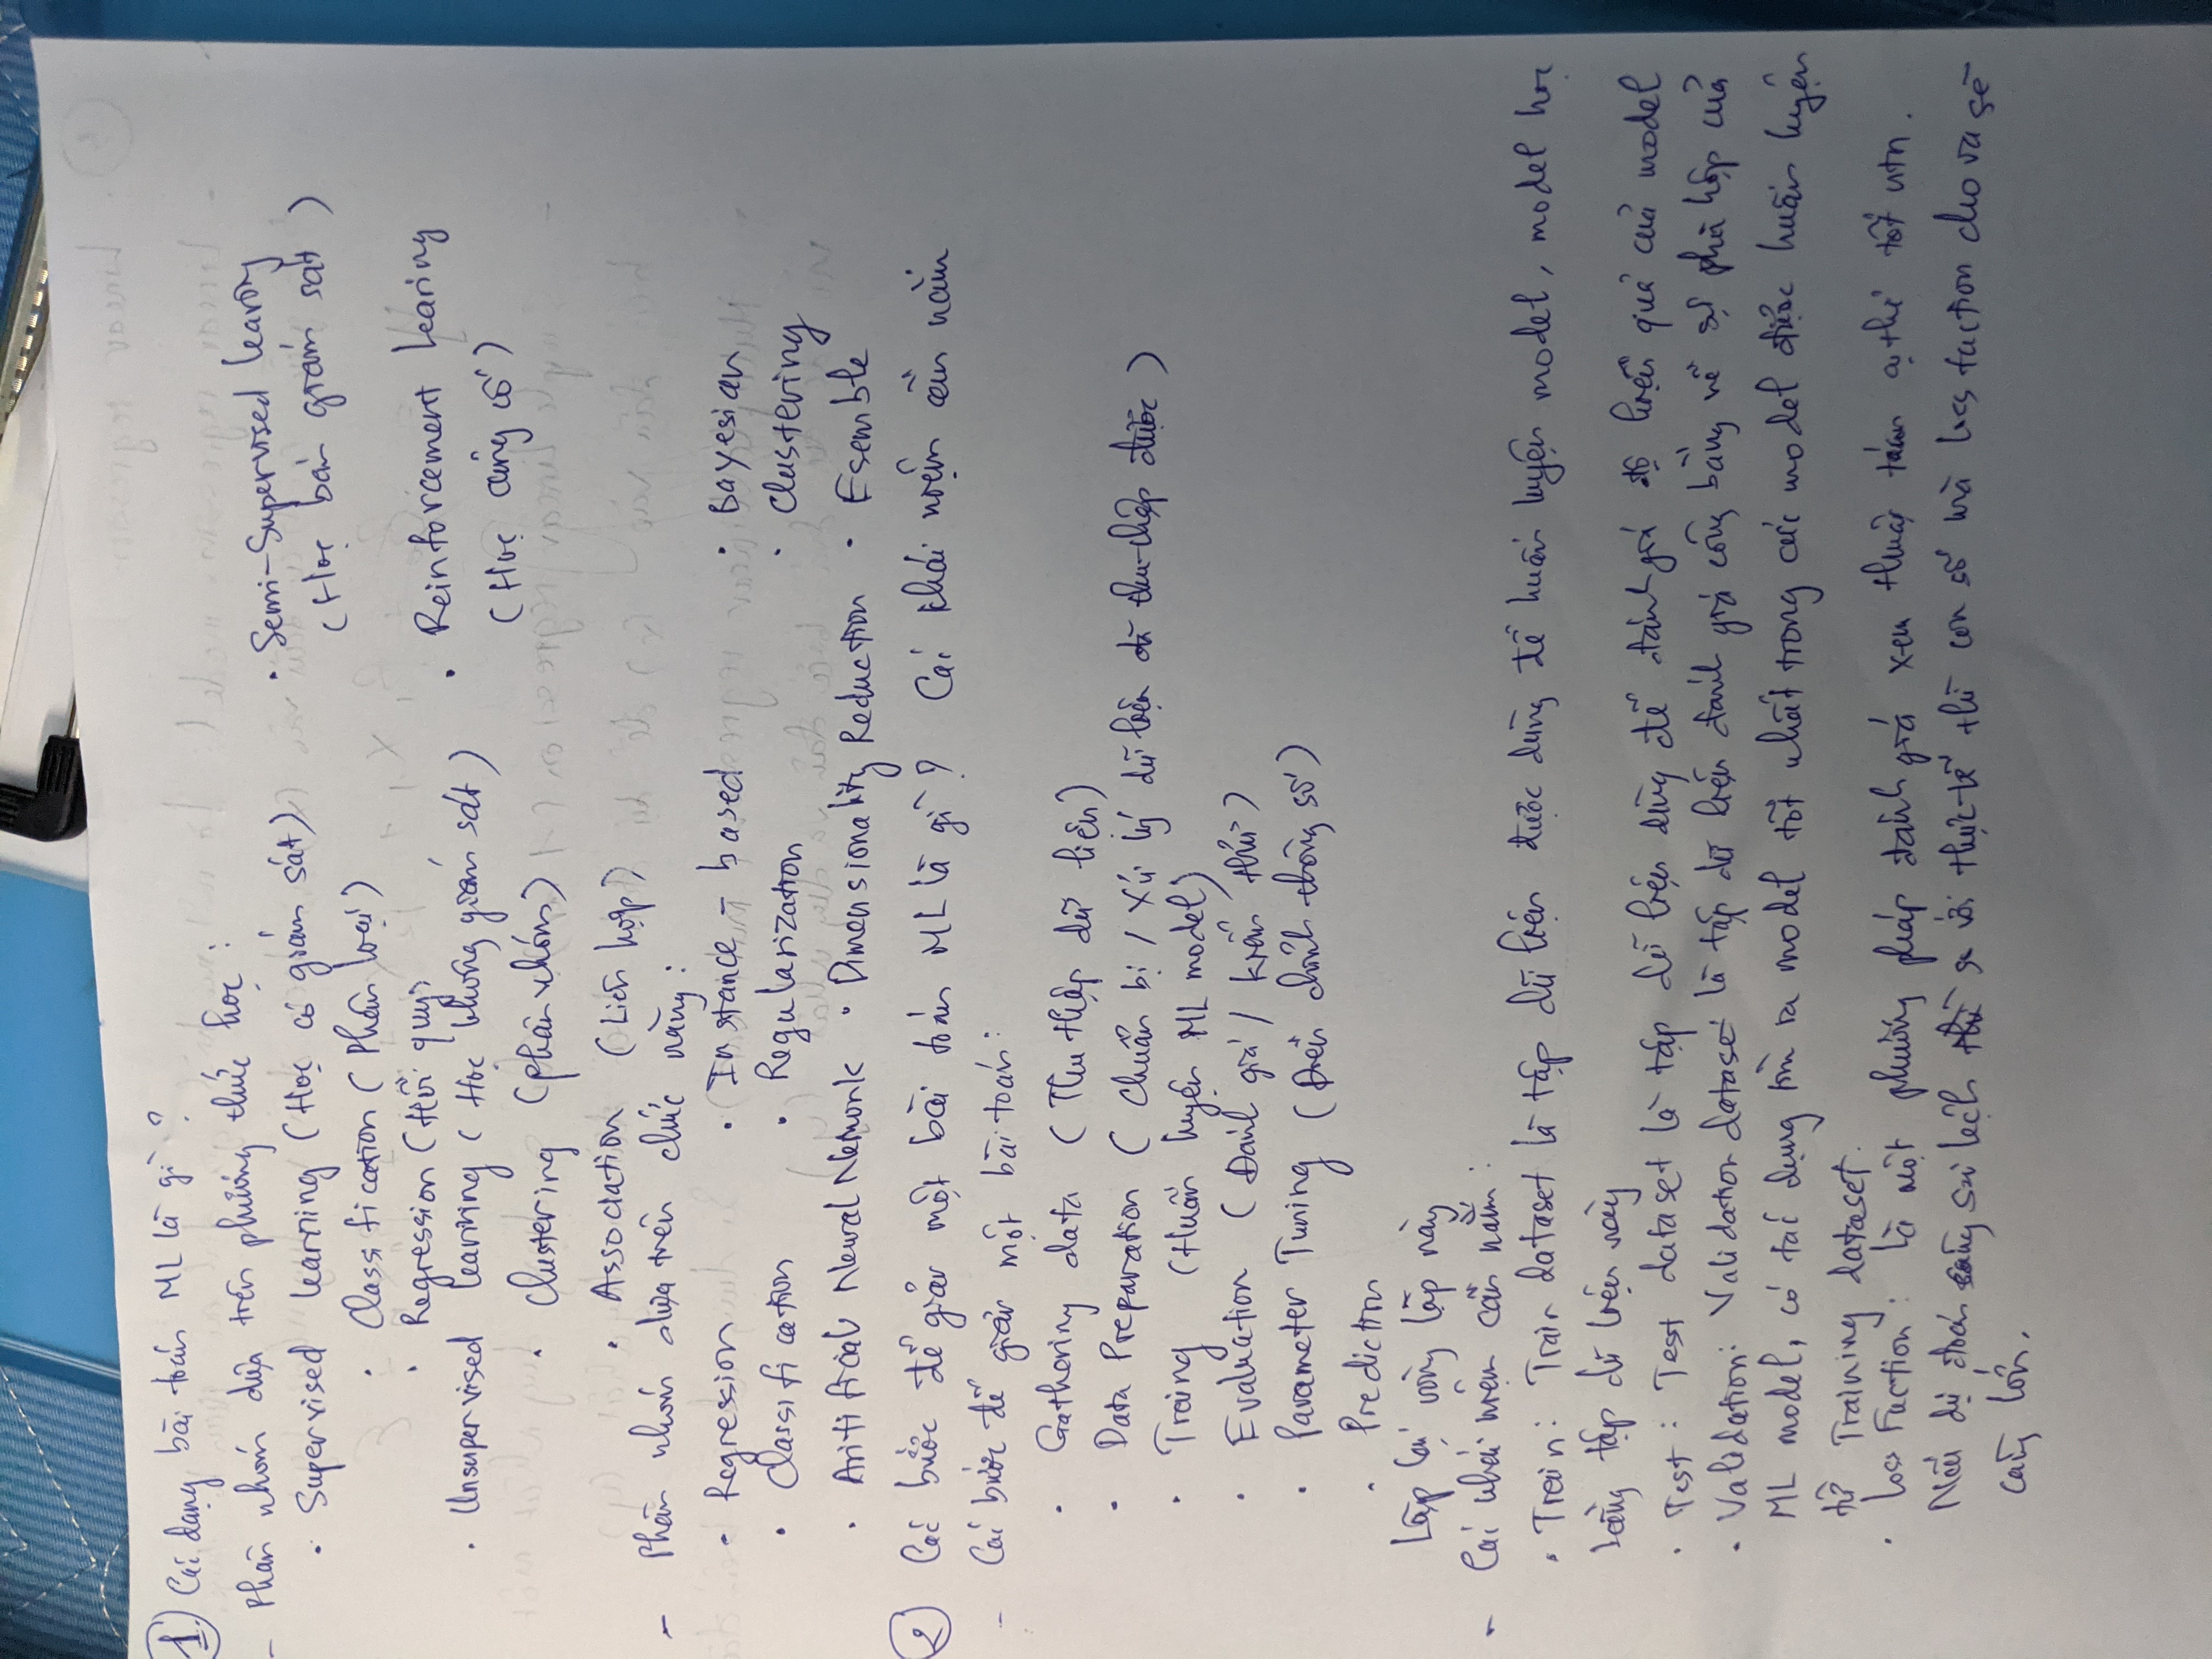 1. Các dạng bài toán ML là gì ?
- Phân nhóm dựa trên phương thức học :
· Supervised learning (Học có giám sát)
· Classification ( Phân loại )
· Regression ( Hồi quy)
· Unsupervised learning ( Học không giám sát )
· Clustering (phân nhóm)
· Association (Liên hợp)
· Semi-Supervised learing
( Học bán giám sát )
· Reinforcement learing
( Học củng cố )
- Phân nhóm dựa trên chức năng :
· Regression · Instance - based · Bayesian
· Classification · Regularization · Clustering
· Aritificial Neural Network · Dimensionality Reduction · Esemble
2 Các bước để giải một bài toán ML là gì ? Các khái niệm cần nắm
- Các bước để giải một bài toán :
· Gathering data ( Thu thập dữ liệu)
· Data Preparation ( Chuẩn bị / Xử lý dữ liệu đã thu thập được )
· Traing (Huấn luyện ML model)
· Evaluation ( Đánh giá / kiểm thử )
· Parameter Tuning ( Điều chỉnh thông số )
· Prediction
Lặp lại vòng lặp này
- Các khái niệm cần nắm :
· Train : Train dataset là tập dữ liệu được dùng để huấn luyện model, model học
bằng tập dữ liệu này
· Test : Test dataset là tập dữ liệu dùng để đánh giá độ hiệu quả của model
· Validation : Validation dataset là tập dữ liệu đánh giá công bằng về sự phù hợp của
ML model, có tác dụng tìm ra model tốt nhất trong các model được huấn luyện
từ Training dataset.
· Loss Fuction : là một phương pháp đánh giá xem thuật toán cụ thể tốt ntn.
Nếu dự đoán càng sai lệch so với thực tế thì con số mà loss fuction cho ra sẽ
càng lớn.